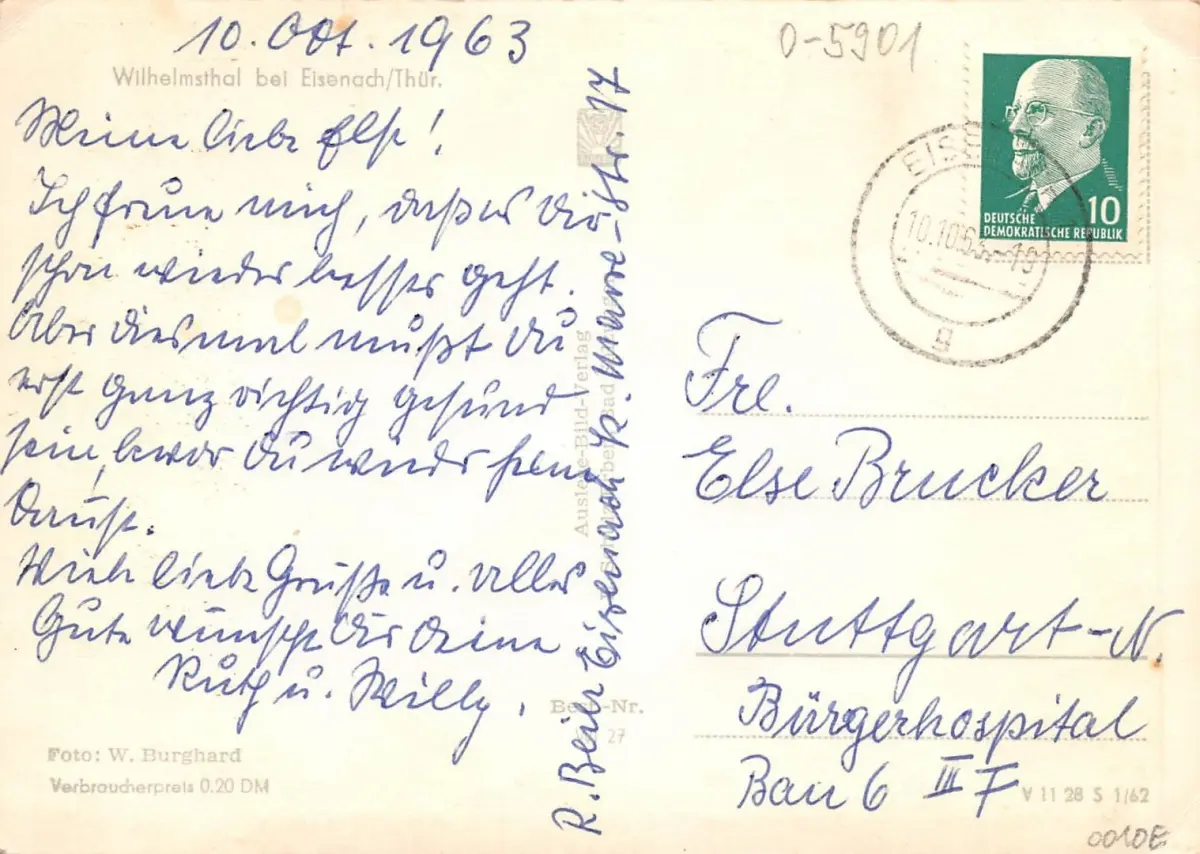 10. Okt. 1963
Wilhelmsthal bei Eisenach/Thür.
Meine liebe Else!
Ich freue mich, daß es dir
schon wieder besser geht.
Aber diesmal mußt Du
erst ganz richtig gesund
sein, bevor Du wieder heim
darfst.
Viele liebe Grüße u. alles
Gute wünscht dir deine
Ruth u. Willy.
Foto: W. Burghard
Verbraucherpreis 0.20 DM
Auslese-Bild-Verlag
Bad
Best-Nr.
27
R. Beik Eisenach K. Marx-Str. 17
0-5901
DEUTSCHE
DEMOKRATISCHE REPUBLIK
10
10.10.63.-19
g
Frl.
Else Brucker
Stuttgart-N.
Bürgerhospital
Bau 6 III F
V 11 28 S 1/62
0010E